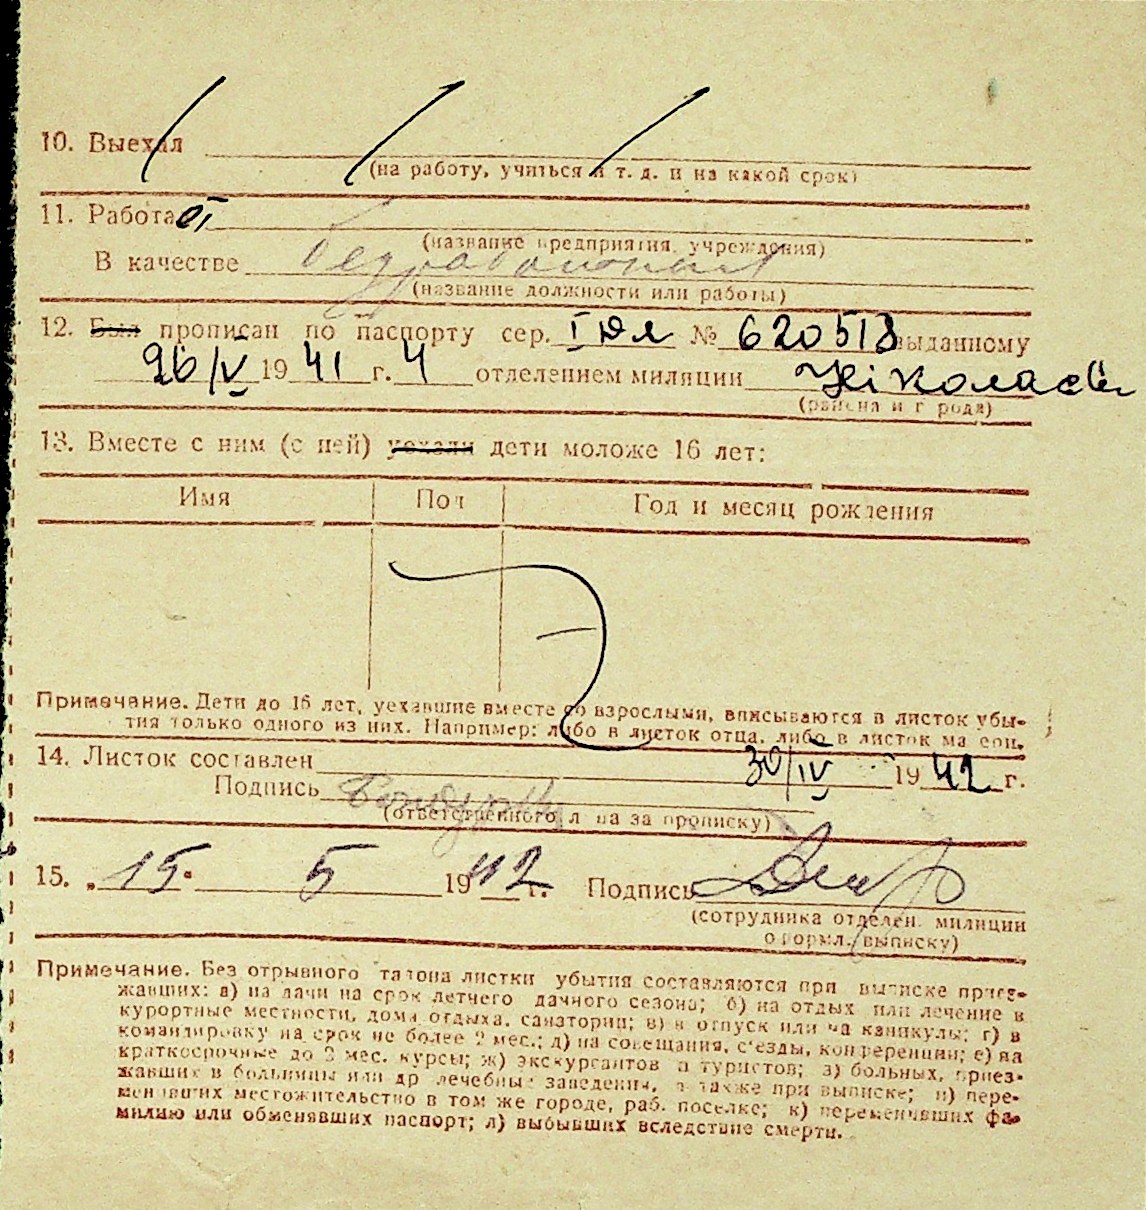 10. Выехал
(на работу, учиться и т. д. и на какой срок)
11. Работа ет
(название предприятия, учреждения)
В качестве
(название должности или работы)
12. Был прописан по паспорту сер. I юя № 620513 выданному
26/IV 1941 г. 4 отделением милиции Ніколаев
(района и города)
13. Вместе с ним (с ней) уехали дети моложе 16 лет:
Имя Пол Год и месяц рождения
Примечание. Дети до 16 лет, уехавшие вместе со взрослыми, вписываются в листок убы-
тия только одного из них. Например: либо в листок отца, либо в листок матери.
14. Листок составлен 30/IV 1942 г.
Подпись
(ответственного лица за прописку)
15. „15“ 5 1942 г. Подпись
(сотрудника отделен. милиции
оформл. выписку)
Примечание. Без отрывного талона листки убытия составляются при выписке приез-
жавших: а) на дачи на срок летнего дачного сезона; б) на отдых или лечение в
курортные местности, дома отдыха, санатории; в) в отпуск или на каникулы; г) в
командировку на срок не более 2 мес.; д) на совещания, съезды, конференции; е) на
краткосрочные до 3 мес. курсы; ж) экскурсантов и туристов; з) больных, приез-
жавших в больницы или др лечебные заведения, а также при выписке; и) пере-
менивших местожительство в том же городе, раб. поселке; к) переменивших фа-
милию или обменявших паспорт; л) выбывших вследствие смерти.